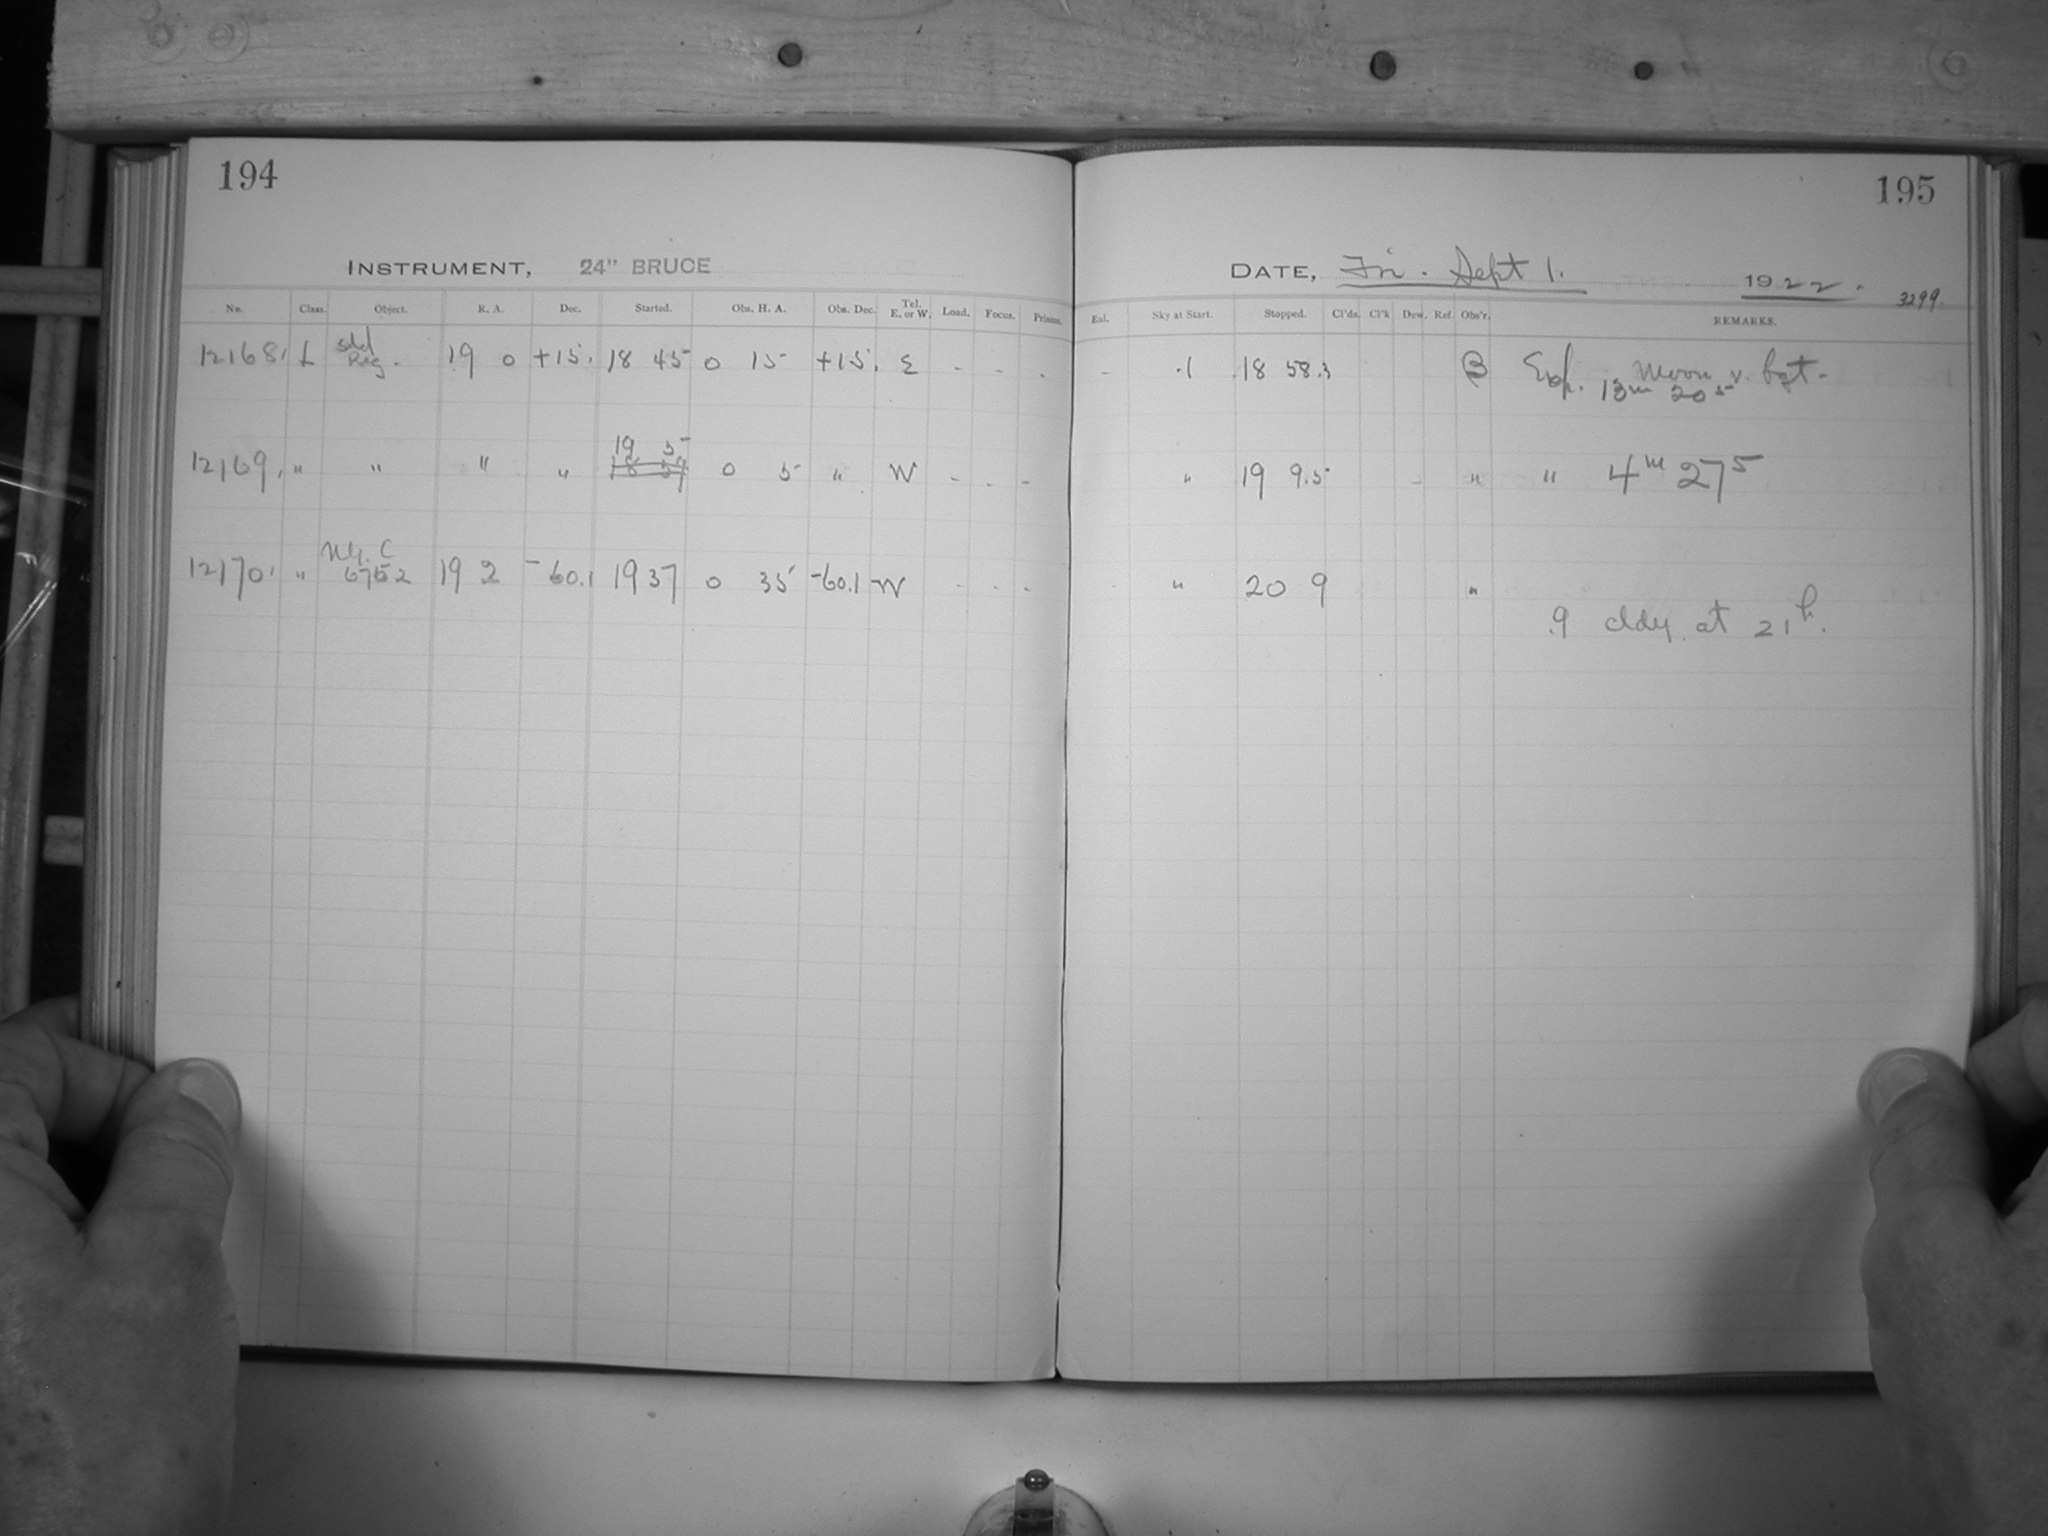 194
195
INSTRUMENT, 24" BRUCE
DATE, Fri. Sept 1. 1922. 3299.
No. Class. Object. R. A. Dec. Started. Obs. H. A. Obs. Dec. Tel. E. or W. Load. Focus. Prisms. Eal. Sky at Start. Stopped. Cl'ds. Cl'k Dew. Ref. Obs'r. REMARKS.
12168 L Std Reg. 19 0 +15 18 45 0 15 +15 E - - - - .1 18 58.3 B Exp. 13m 20s Moon v. bgt.
12169 " " " " 19 5 18 59 0 5 " W - - - " 19 9.5 - " " 4m 27s
12170 " N.G.C 6752 19 2 -60.1 19 37 0 35 -60.1 W - - - - " 20 9 "
.9 cldy. at 21h.